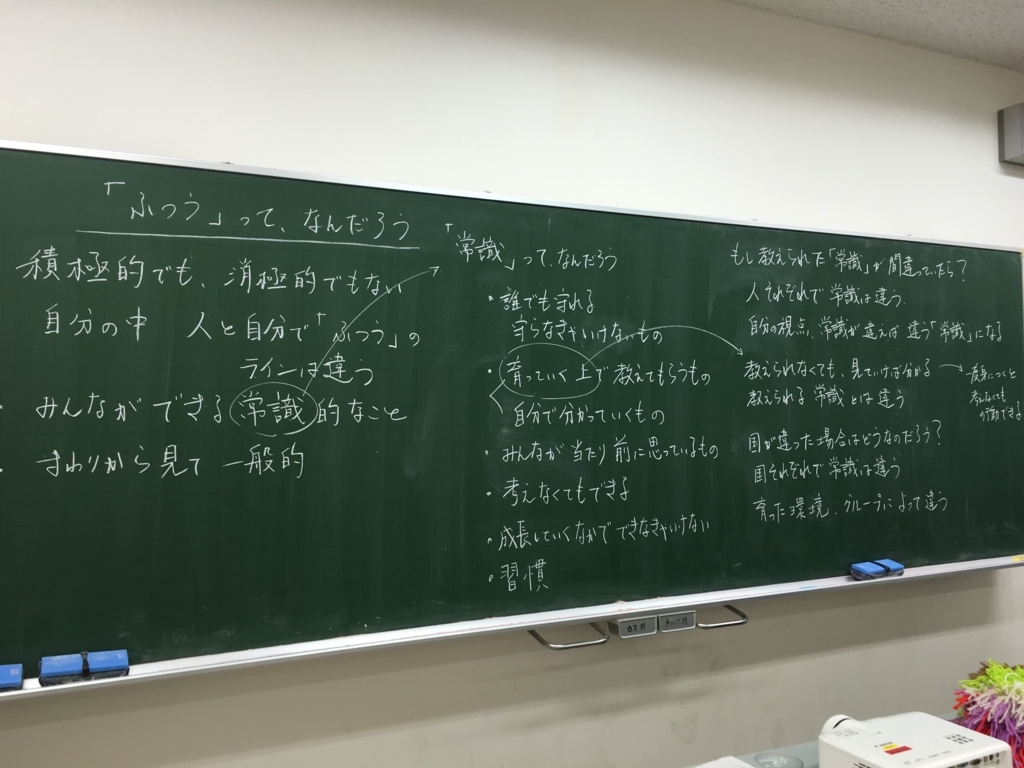 「ふつう」って、なんだろう
積極的でも、消極的でもない
自分の中 人と自分で「ふつう」の
ラインは違う
・みんなができる常識的なこと
・まわりから見て一般的
「常識」って、なんだろう
・誰でも守れる
守らなきゃいけないもの
・育っていく上で教えてもらうもの
自分で分かっていくもの
・みんなが当たり前に思っているもの
・考えなくてもできる
・成長していくなかでできなきゃいけない
・習慣
もし教えられた「常識」が間違っていたら?
人それぞれで常識は違う
自分の視点、常識が違えば違う「常識」になる
教えられなくても、見ていけば分かる
教えられる常識とは違う
身につくと
考えなくても
行動できる
国が違った場合はどうなのだろう?
国それぞれで常識は違う
育った環境、グループによって違う